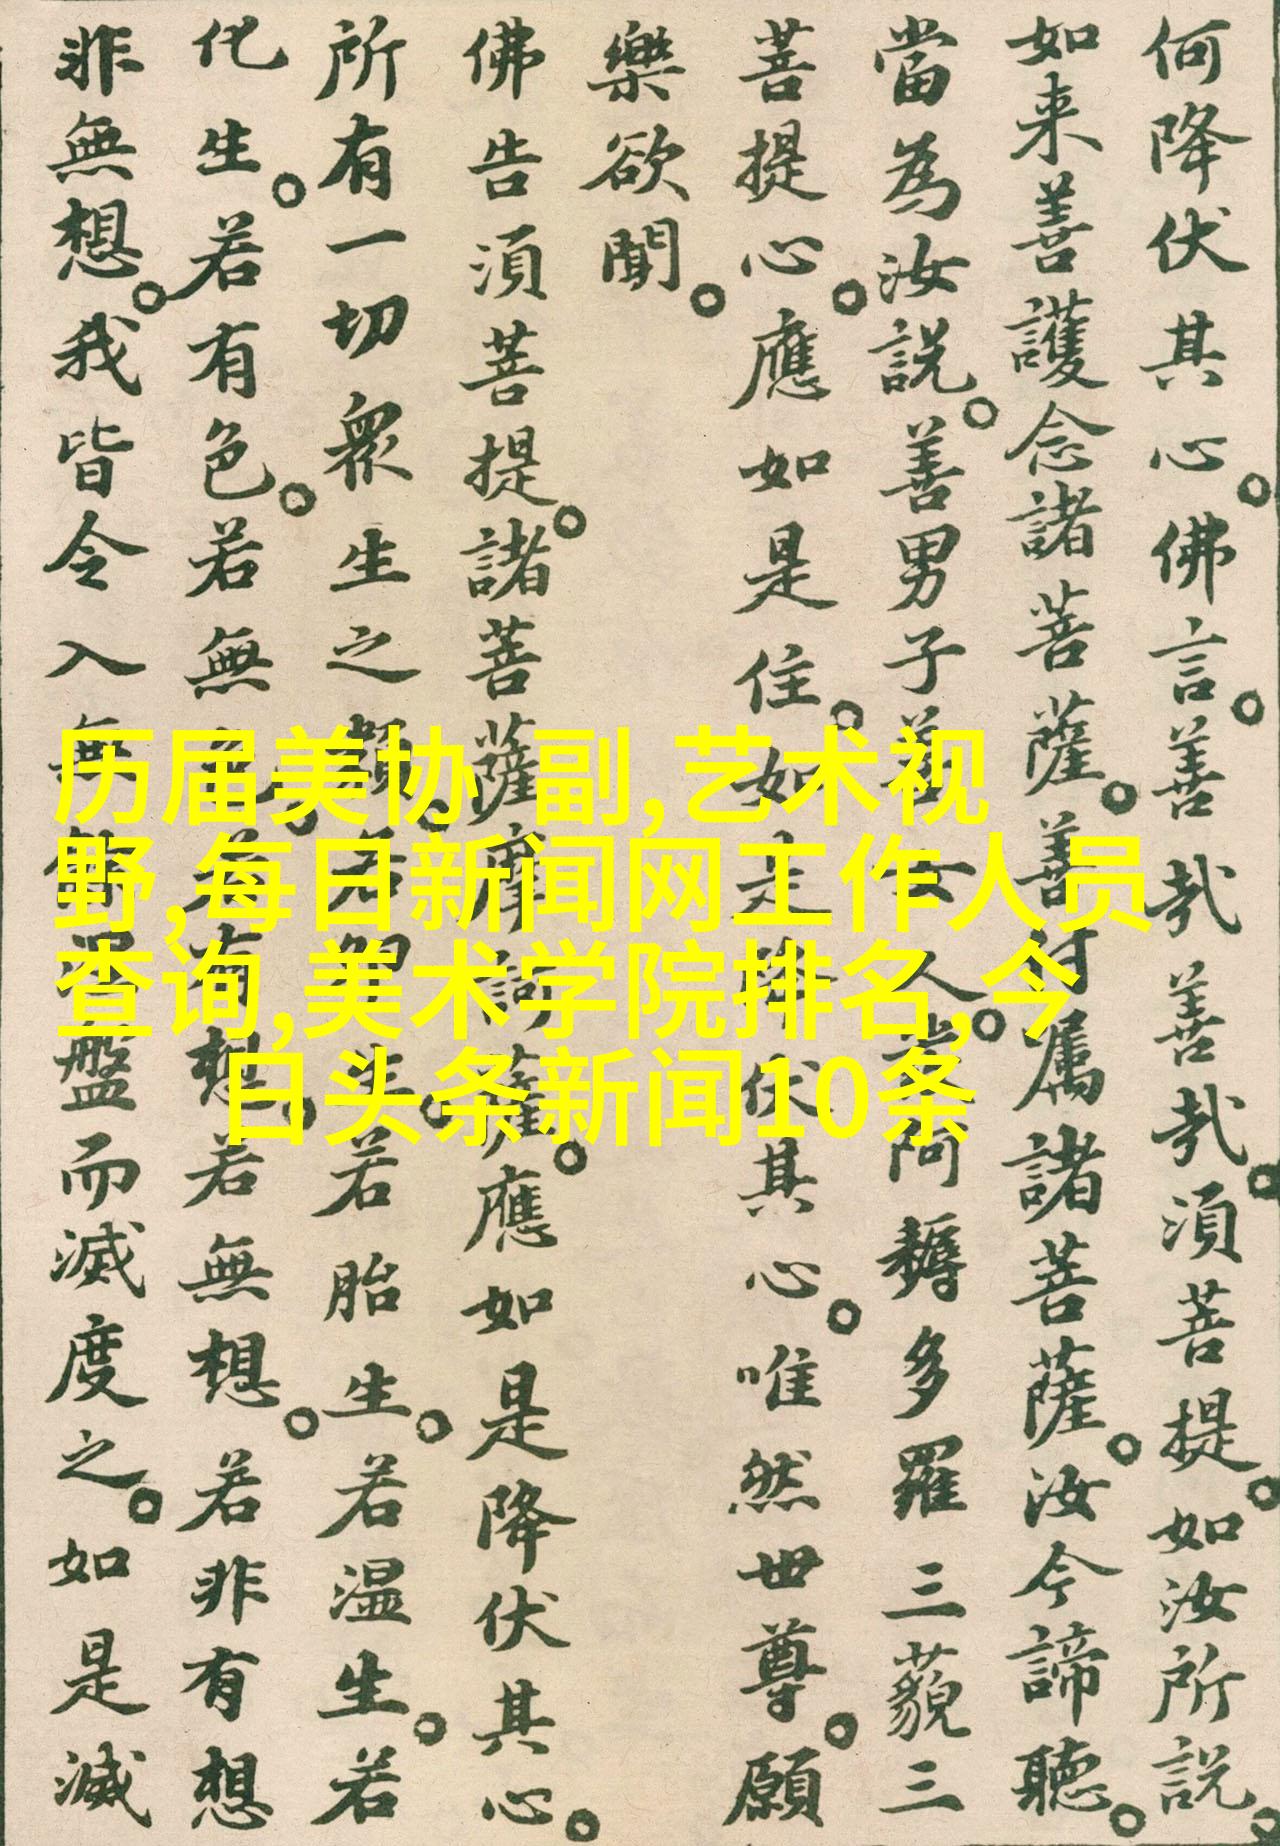 何降伏其心。佛言。善哉善哉。須菩提。如汝所説。
如来善護念諸菩薩。善付属諸菩薩。汝今諦聽。
當為汝説。善男子善女人。阿耨多羅三藐三
菩提心。應如是住。如是降伏其心。唯然世尊。願
樂欲聞。
佛告須菩提。諸菩薩摩訶薩。應如是降伏其心。
所有一切衆生之類。若卵生。若胎生。若温生。若
化生。若有色。若無色。若有想。若無想。若非有想
非無想。我皆令入無餘涅盤而滅度之。如是滅
历届美协 副,艺术视
野,每日新闻网工作人员
查询,美术学院排名,今
日头条新闻10条